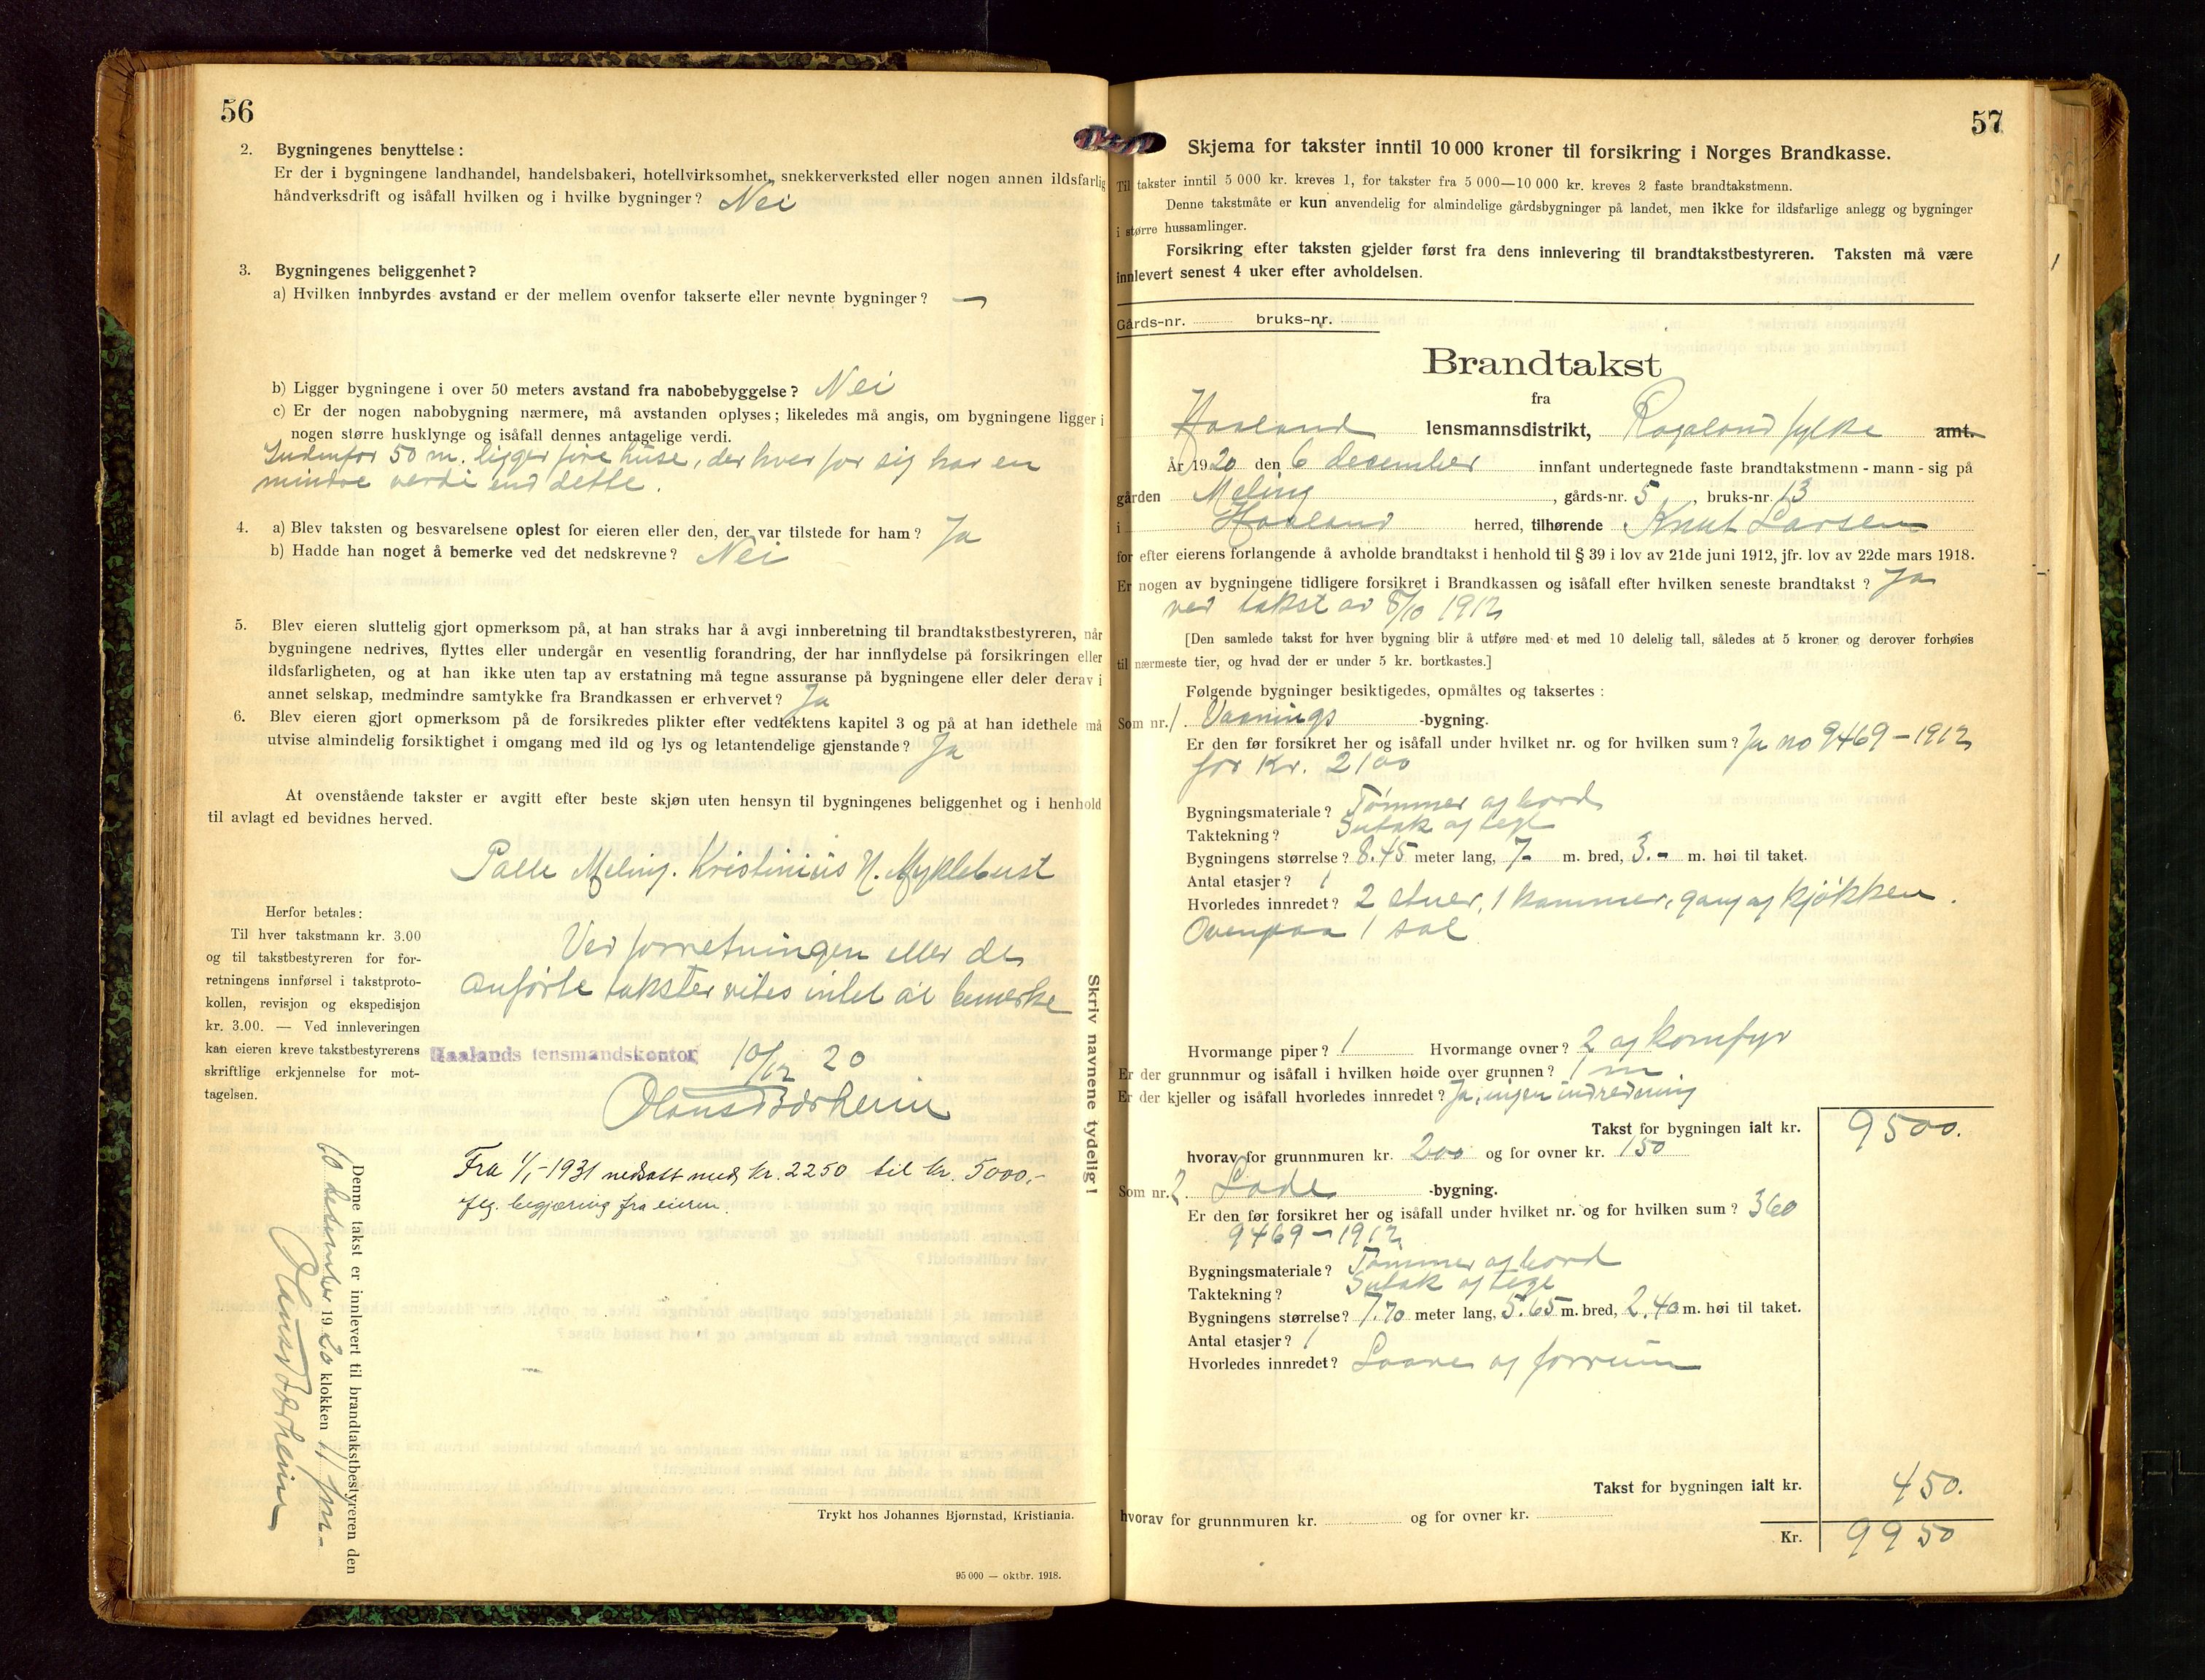 56
2. Bygningenes benyttelse:
Er der i bygningene landhandel, handelsbakeri, hotellvirksomhet, snekkerverksted eller nogen annen ildsfarlig
håndverksdrift og isåfall hvilken og i hvilke bygninger? Nei
3. Bygningenes beliggenhet?
a) Hvilken innbyrdes avstand er der mellem ovenfor takserte eller nevnte bygninger? —
b) Ligger bygningene i over 50 meters avstand fra nabobebyggelse? Nei
c) Er der nogen nabobygning nærmere, må avstanden oplyses; likeledes må angis, om bygningene ligger i
nogen større husklynge og isåfall dennes antagelige verdi.
Indenfor 50 m. ligger fire huse, der hver for sig har en
mindre verdi end dette.
4. a) Blev taksten og besvarelsene oplest for eieren eller den, der var tilstede for ham? Ja
b) Hadde han noget å bemerke ved det nedskrevne? Nei
5. Blev eieren sluttelig gjort opmerksom på, at han straks har å avgi innberetning til brandtakstbestyreren, når
bygningene nedrives, flyttes eller undergår en vesentlig forandring, der har innflydelse på forsikringen eller
ildsfarligheten, og at han ikke uten tap av erstatning må tegne assuranse på bygningene eller deler derav i
annet selskap, medmindre samtykke fra Brandkassen er erhvervet? Ja
6. Blev eieren gjort opmerksom på de forsikredes plikter efter vedtektens kapitel 3 og på at han idethele må
utvise almindelig forsiktighet i omgang med ild og lys og letantendelige gjenstande? Ja
At ovenstående takster er avgitt efter beste skjøn uten hensyn til bygningenes beliggenhet og i henhold
til avlagt ed bevidnes herved.
Palle Meling. Kristinius N. Myklebust
Herfor betales:
Til hver takstmann kr. 3.00
og til takstbestyreren for for-
retningens innførsel i takstproto-
kollen, revisjon og ekspedisjon
kr. 3.00. — Ved innleveringen
kan eieren kreve takstbestyrerens
skriftlige erkjennelse for mot-
tagelsen.
Ved forretningen eller de
anførte takster vites intet at bemerke
Haalands lensmandskontor 10/12 20
Olaus Børheim
Fra 1/1-1931 nedsatt med kr. 2250 til kr. 5000,-
flg. begjæring fra eieren.
Skriv navnene tydelig!
Denne takst er innlevert til brandtakstbestyreren den
10 desember 1920 klokken 11 fm.
Olaus Børheim
Trykt hos Johannes Bjørnstad, Kristiania.
95 000 — oktbr. 1918.
57
Skjema for takster inntil 10 000 kroner til forsikring i Norges Brandkasse.
Til takster inntil 5 000 kr. kreves 1, for takster fra 5 000—10 000 kr. kreves 2 faste brandtakstmenn.
Denne takstmåte er kun anvendelig for almindelige gårdsbygninger på landet, men ikke for ildsfarlige anlegg og bygninger
i større hussamlinger.
Forsikring efter taksten gjelder først fra dens innlevering til brandtakstbestyreren. Taksten må være
innlevert senest 4 uker efter avholdelsen.
Gårds-nr. bruks-nr.
Brandtakst
fra
Haaland lensmannsdistrikt, Rogaland fylke amt.
År 1920 den 6 december innfant undertegnede faste brandtakstmenn - mann - sig på
gården Meling, gårds-nr. 5, bruks-nr. 13
i Haaland herred, tilhørende Knut Larsen
for efter eierens forlangende å avholde brandtakst i henhold til § 39 i lov av 21de juni 1912, jfr. lov av 22de mars 1918.
Er nogen av bygningene tidligere forsikret i Brandkassen og isåfall efter hvilken seneste brandtakst? Ja
ved takst av 8/10 1912
[Den samlede takst for hver bygning blir å utføre med et med 10 delelig tall, således at 5 kroner og derover forhøies
til nærmeste tier, og hvad der er under 5 kr. bortkastes.]
Følgende bygninger besiktigedes, opmåltes og taksertes:
Som nr. 1. Vaanings -bygning.
Er den før forsikret her og isåfall under hvilket nr. og for hvilken sum? Ja no 9469 - 1912
for Kr. 2100
Bygningsmateriale? Tømmer og bord
Taktekning? Sutak og tegl
Bygningens størrelse? 8.45 meter lang, 7- m. bred, 3.- m. høi til taket.
Antal etasjer? 1
Hvorledes innredet? 2 stuer, 1 kammer, gang og kjøkken.
Ovenpaa 1 sal
Hvormange piper? 1 Hvormange ovner? 2 og komfyr
Er der grunnmur og isåfall i hvilken høide over grunnen? 1 m
Er der kjeller og isåfall hvorledes innredet? Ja, ingen indredning
Takst for bygningen ialt kr. 9500.
hvorav for grunnmuren kr. 200 og for ovner kr. 150
Som nr. 2. Lade -bygning.
Er den før forsikret her og isåfall under hvilket nr. og for hvilken sum? 360
9469 - 1912
Bygningsmateriale? Tømmer og bord
Taktekning? Sutak og tegl
Bygningens størrelse? 7.70 meter lang, 5.65 m. bred, 2.40 m. høi til taket.
Antal etasjer? 1
Hvorledes innredet? Laave og forrum
Takst for bygningen ialt kr. 450.
hvorav for grunnmuren kr. og for ovner kr.
Kr. 9950